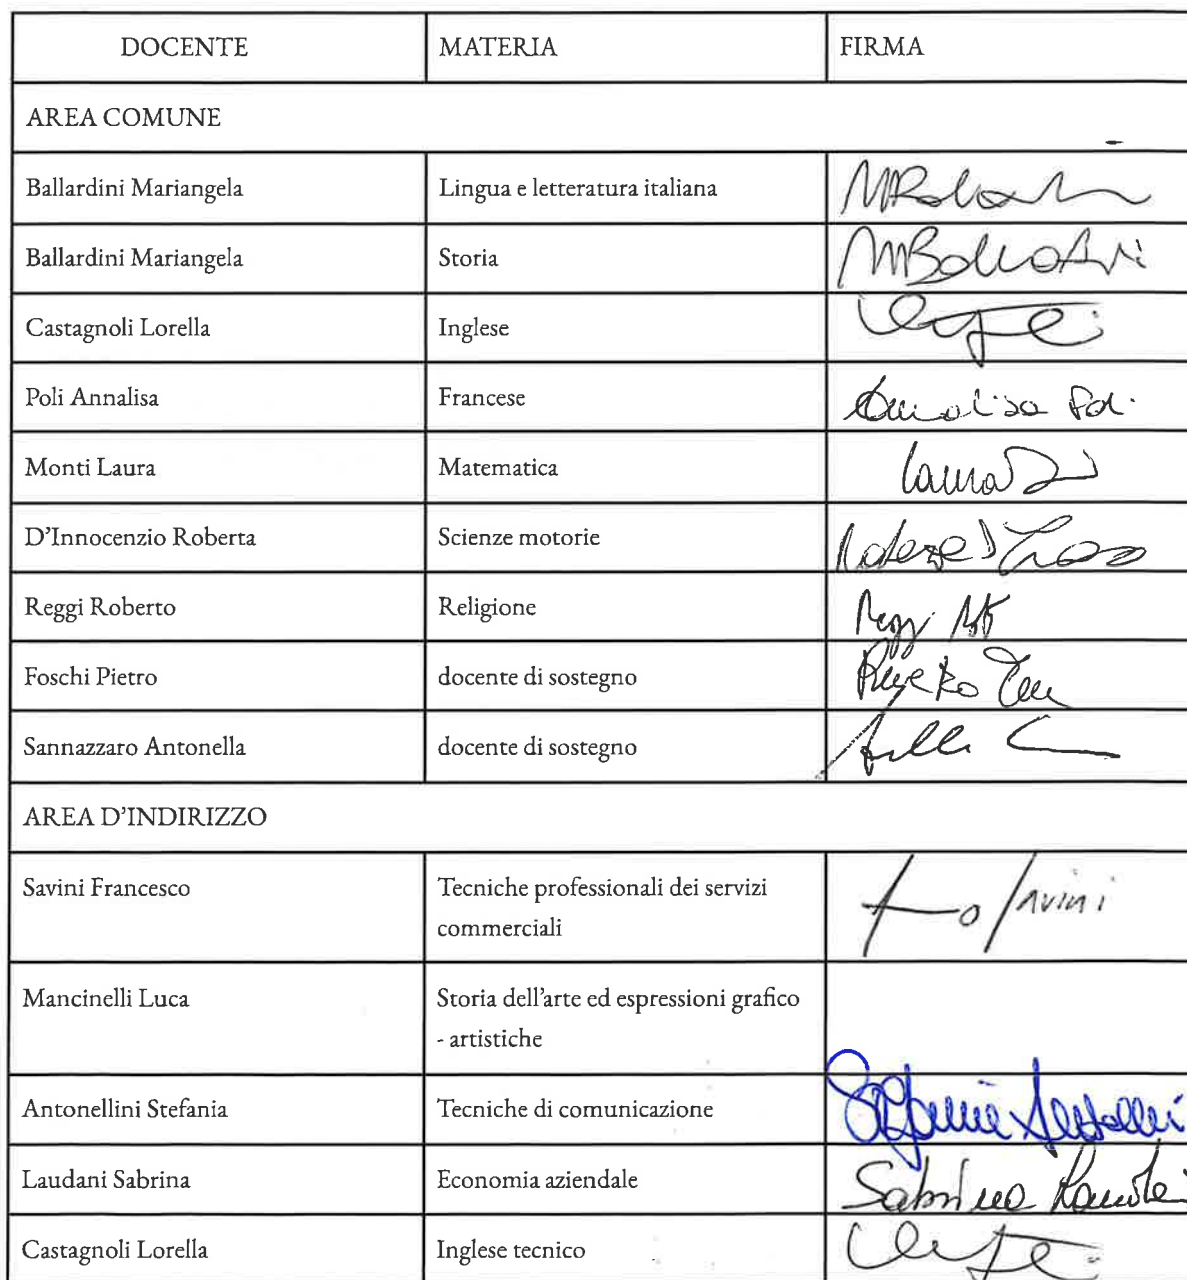 DOCENTE MATERIA FIRMA
AREA COMUNE
Ballardini Mariangela Lingua e letteratura italiana
Ballardini Mariangela Storia
Castagnoli Lorella Inglese
Poli Annalisa Francese Annalisa Poli
Monti Laura Matematica Laura
D'Innocenzio Roberta Scienze motorie
Reggi Roberto Religione Reggi
Foschi Pietro docente di sostegno
Sannazzaro Antonella docente di sostegno
AREA D'INDIRIZZO
Savini Francesco Tecniche professionali dei servizi Savini
commerciali
Mancinelli Luca Storia dell'arte ed espressioni grafico
- artistiche
Antonellini Stefania Tecniche di comunicazione Stefania Antonellini
Laudani Sabrina Economia aziendale Sabrina
Castagnoli Lorella Inglese tecnico